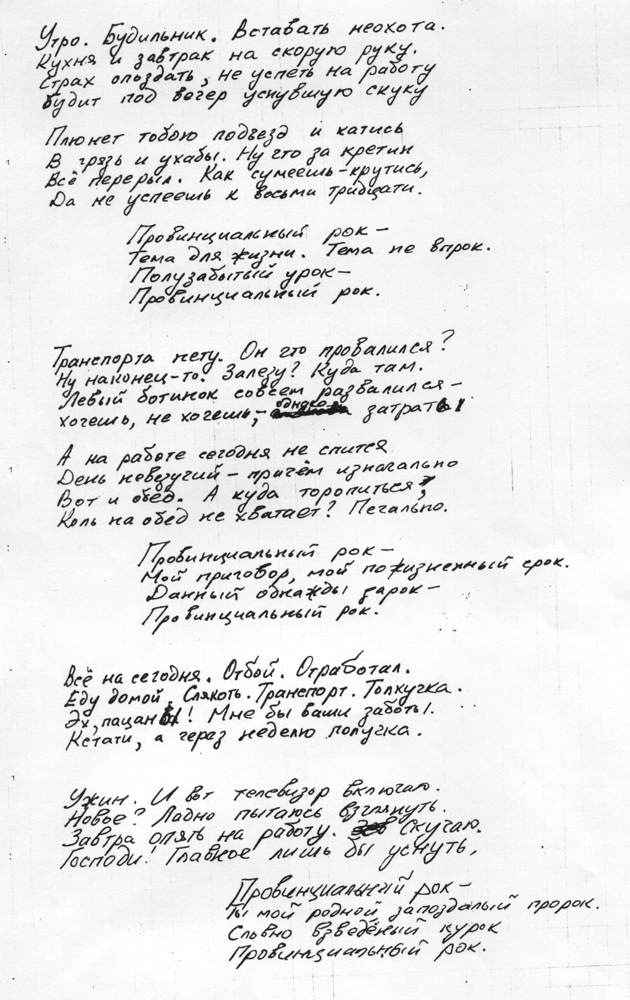 Утро. Будильник. Вставать неохота.
Кухня и завтрак на скорую руку.
Страх опоздать, не успеть на работу
Будит под вечер уснувшую скуку
Плюнет тобою подъезд и катись
В грязь и ухабы. Ну что за кретин
Всё перерыл. Как сумеешь-крутись,
Да не успеешь к восьми тридцати.
Провинциальный рок –
Тема для жизни. Тема не впрок.
Полузабытый урок –
Провинциальный рок.
Транспорта нету. Он что провалился?
Ну наконец-то. Залезу? Куда там.
Левый ботинок совсем развалился –
Хочешь, не хочешь, – однако затраты
А на работе сегодня не спится
День невезучий – причём изначально
Вот и обед. А куда торопиться,
Коль на обед не хватает? Печально.
Провинциальный рок –
Мой приговор, мой пожизненный срок.
Данный однажды зарок –
Провинциальный рок.
Всё на сегодня. Отбой. Отработал.
Еду домой. Слякоть. Транспорт. Толкучка.
Эх, пацаны! Мне бы ваши заботы.
Кстати, а через неделю получка.
Ужин. И вот телевизор включаю.
Новое? Ладно пытаюсь взглянуть.
Завтра опять на работу. Скучаю.
Господи! Главное лишь бы уснуть,
Провинциальный рок –
Ты мой родной запоздалый пророк.
Словно взведёный курок
Провинциальный рок.